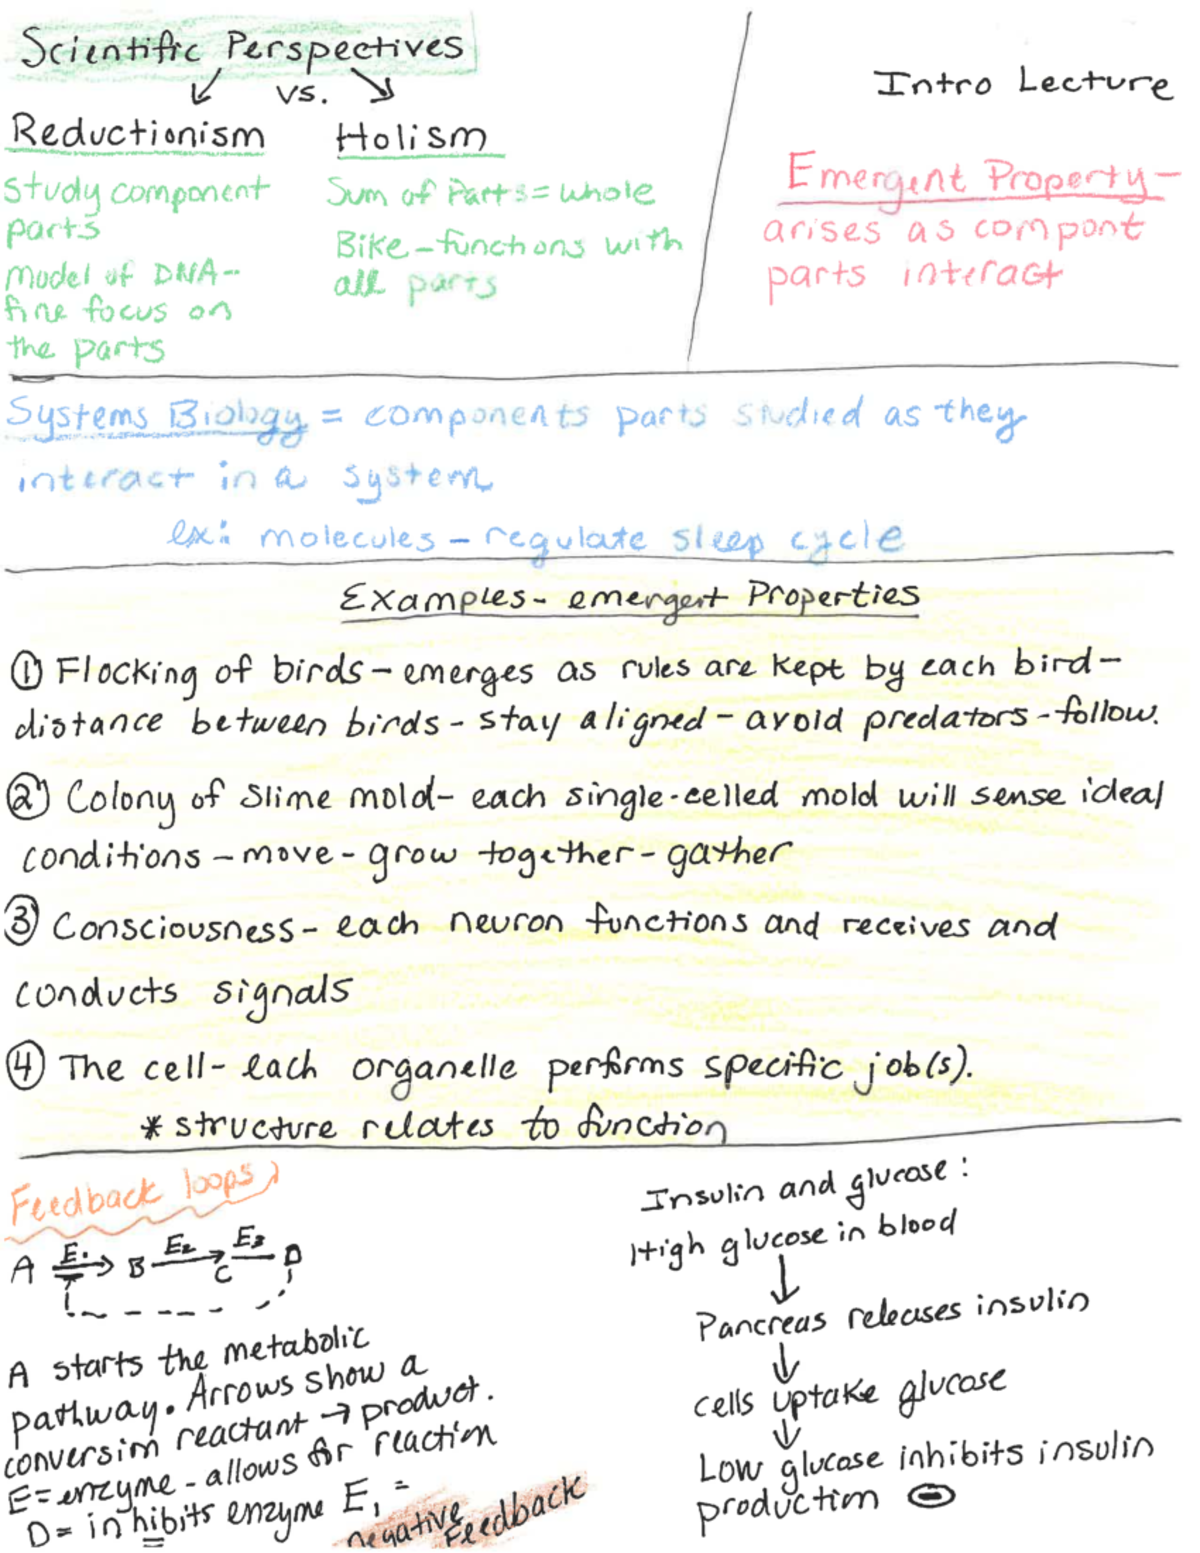 Scientific Perspectives
vs.
Reductionism
study component
parts
model of DNA--
fine focus on
the parts
Holism
Sum of Parts = whole
Bike - functions with
all parts
Intro Lecture
Emergent Property -
arises as compont
parts interact
Systems Biology = components parts studied as they
interact in a system
ex: molecules - regulate sleep cycle
Examples - emergent Properties
① Flocking of birds - emerges as rules are kept by each bird -
distance between birds - stay aligned - avoid predators - follow.
② Colony of slime mold - each single-celled mold will sense ideal
conditions - move - grow together - gather
③ Consciousness - each neuron functions and receives and
conducts signals
④ The cell - each organelle performs specific job(s).
* structure relates to function
Feedback loops
A E₁ → B E₂ → C E₃ D
A starts the metabolic
pathway. Arrows show a
conversion reactant → product.
E = enzyme - allows for reaction
D = inhibits enzyme E₁ =
negative Feedback
Insulin and glucose:
High glucose in blood
↓
Pancreas releases insulin
↓
cells uptake glucose
↓
Low glucose inhibits insulin
production ⊖